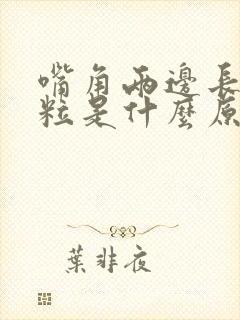 嘴角兩邊長
粒是什麼原
葉非夜